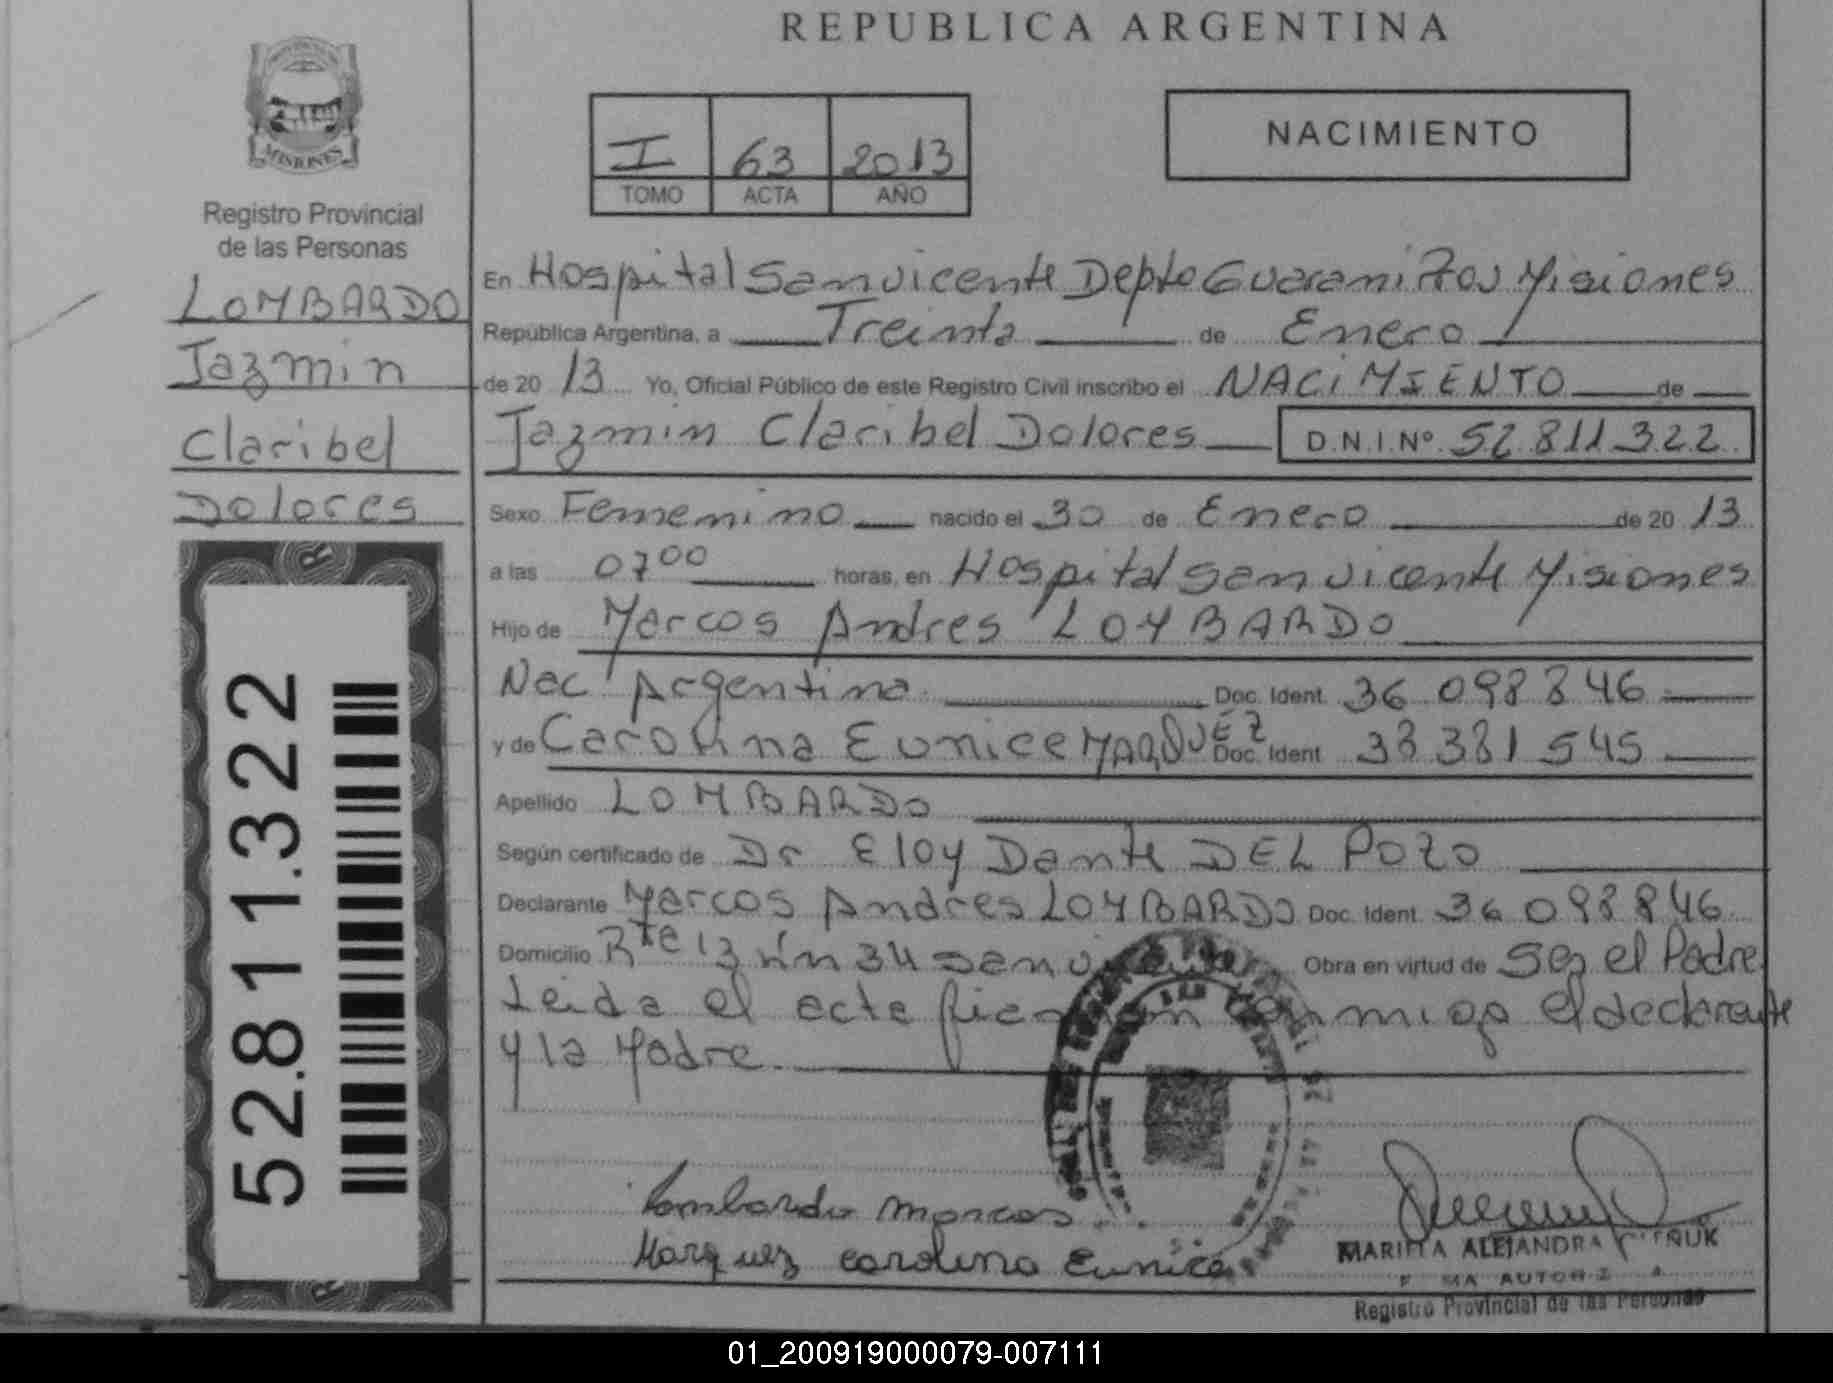 REPUBLICA ARGENTINA
MISIONES
Registro Provincial
de las Personas
LOMBARDO
Jazmin
Claribel
Dolores
52.811.322
I 63 2013
TOMO ACTA AÑO
NACIMIENTO
En Hospital San vicente Depto Guarani Misiones
República Argentina, a Treinta de Enero
de 20 13 Yo, Oficial Público de este Registro Civil inscribo el NACIMIENTO de
Jazmin Claribel Dolores D.N.I.Nº 52 811 322
Sexo Femenino nacido el 30 de Enero de 20 13
a las 07 00 horas, en Hospital San vicente Misiones
Hijo de Marcos Andres LOMBARDO
Nac Argentina Doc. Ident. 36 098 846
y de Carolina Eunice MARQUEZ Doc. Ident. 38 381 545
Apellido LOMBARDO
Según certificado de Dr Eloy Dante DEL POZO
Declarante Marcos Andres LOMBARDO Doc. Ident. 36 098 846
Domicilio Rte 13 34 San Obra en virtud de Ser el Padre
Leida el acta conmigo el declarante
y la Madre
Lombardo Marcos
Marquez Carolina Eunice
ALEJANDRA
Registro Provincial de las Personas
01_200919000079-007111